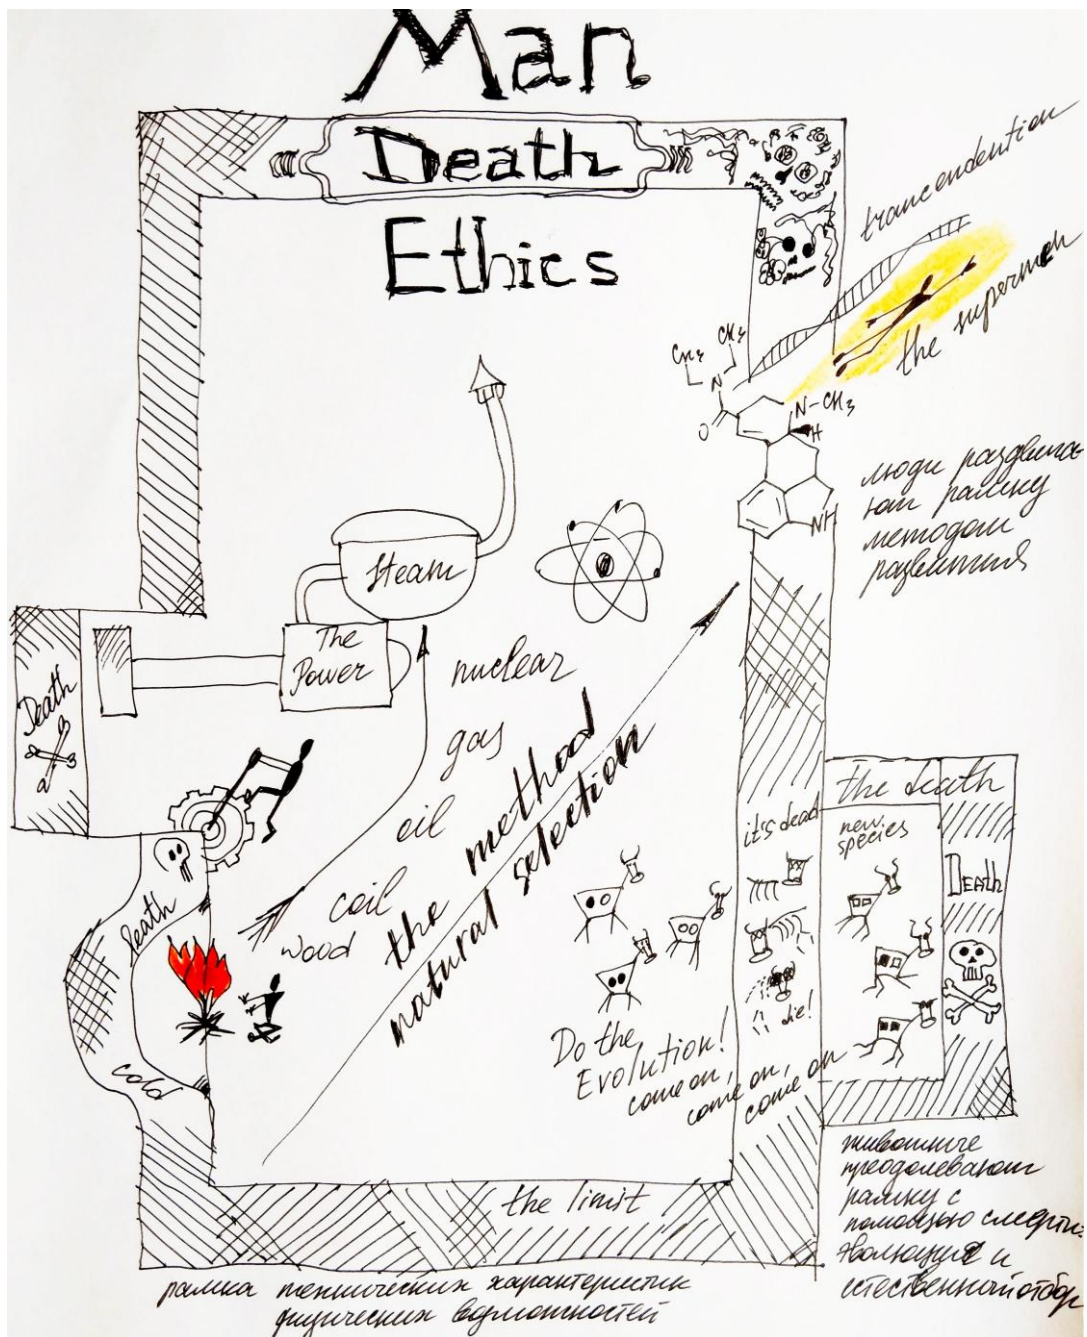 Man
Death
Ethics
trancendention
the supermen
CH3
CH3
N
O
N-CH3
H
NH
люди раздвига-
ют рамку
методом
развития
Steam
The
Power
Death
nuclear
gas
oil
coil
wood
the method
natural selection
death
cold
it's dead
die!
the death
new
species
DEATH
Do the
Evolution!
come on,
come on,
come on
the limit
животные
преодолевают
рамку с
помощью смерти:
эволюция и
естественный отбор
рамка технических характеристик
физических возможностей